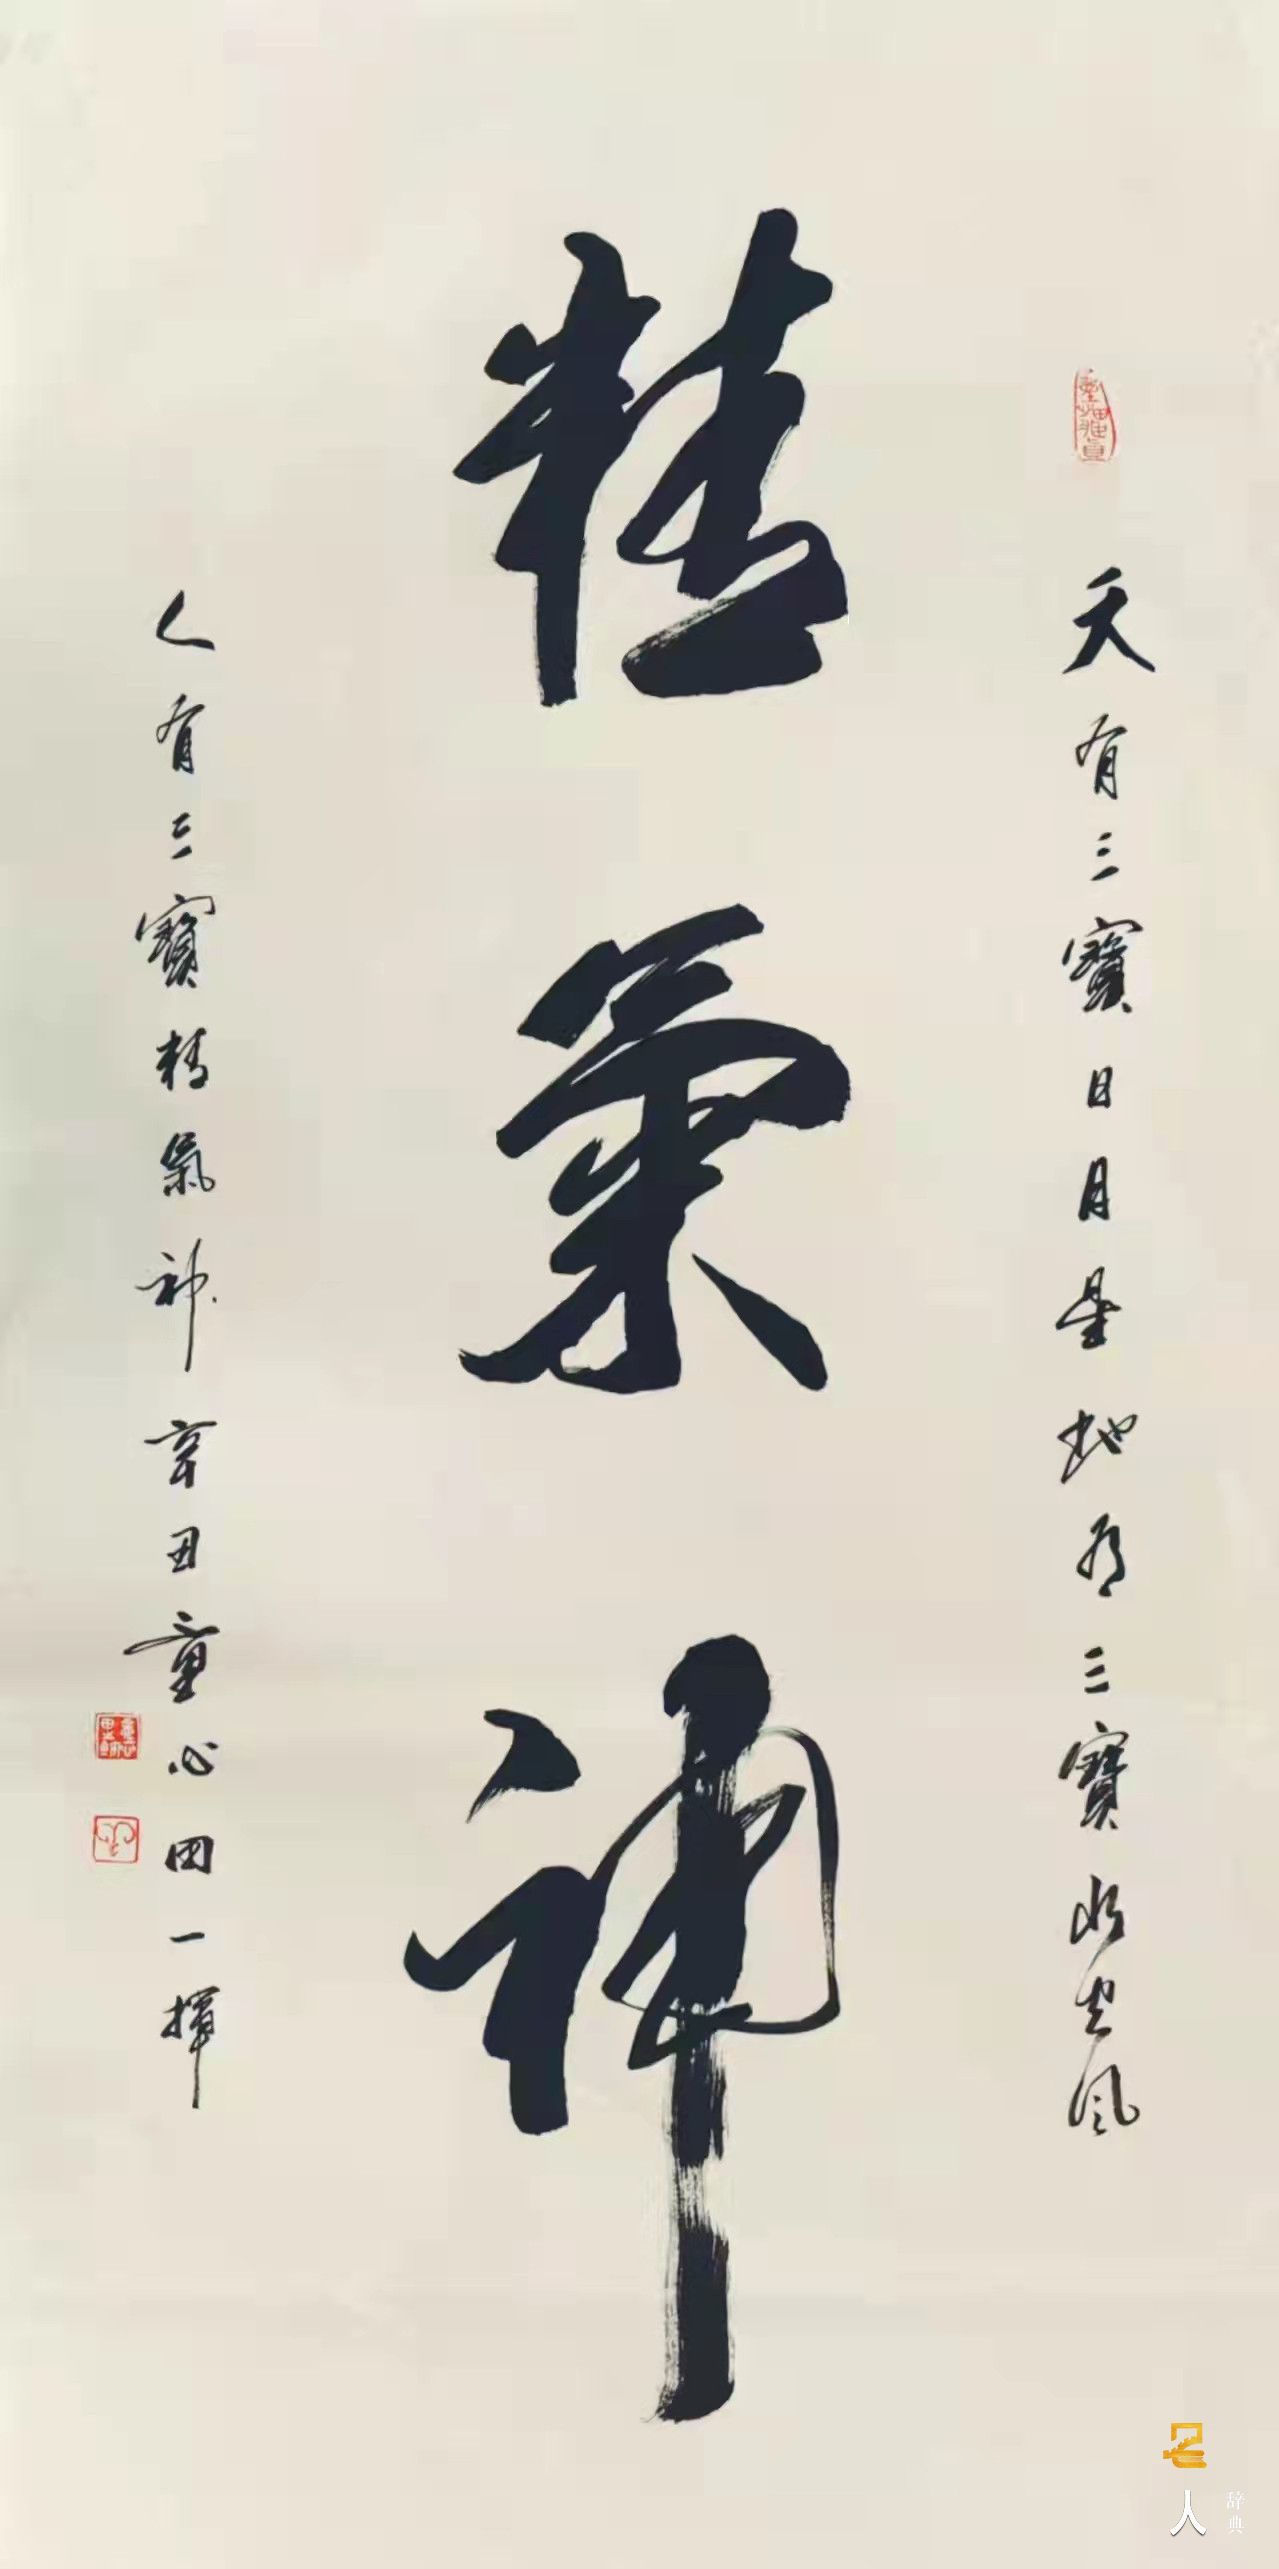 天有三寶日月星地有三寶水火風
精氣神
人有三寶精氣神辛丑童心田一揮
名人辞典